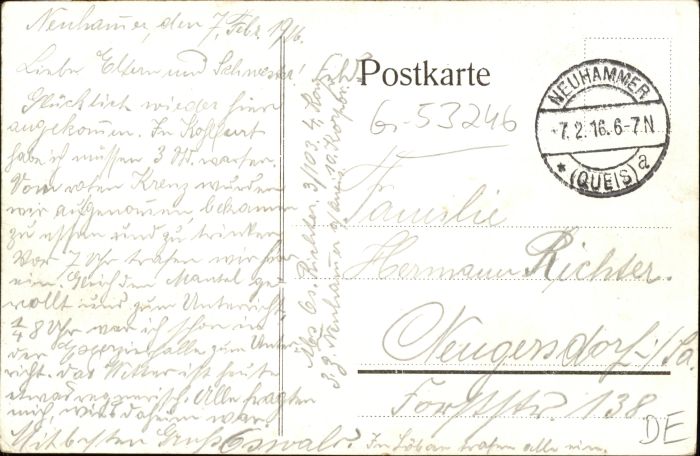 Neuhammer, den 7. Febr. 1916.
Liebe Eltern und Schwester!
Glücklich wieder hier
angekommen. In Kohlfurt
habe ich müssen 3 Std. warten.
Vom roten Kreuz wurden
wir aufgenommen, bekamen
zu essen und zu trinken
Vor 7 Uhr trafen wir hier
ein. Gleich den Mantel ge
rollt und zum Unterricht,
8 Uhr war ich schon in
der Exerzierhalle zum Unter
richt. Das Wetter ist heute
etwas regnerisch. Alle fragten
mich, wie's daheim war.
Mit besten Gruß Oswald
In Löbau trafen alle ein.
Richter 3/103. 4. Kom
Neuhammer a/Queis 10. Korpor.
Postkarte
G-53246
NEUHAMMER
-7.2.16.6-7N
* (QUEIS) a
Familie
Hermann Richter.
Neugersdorf i/Sa.
Forststr. 138
DE